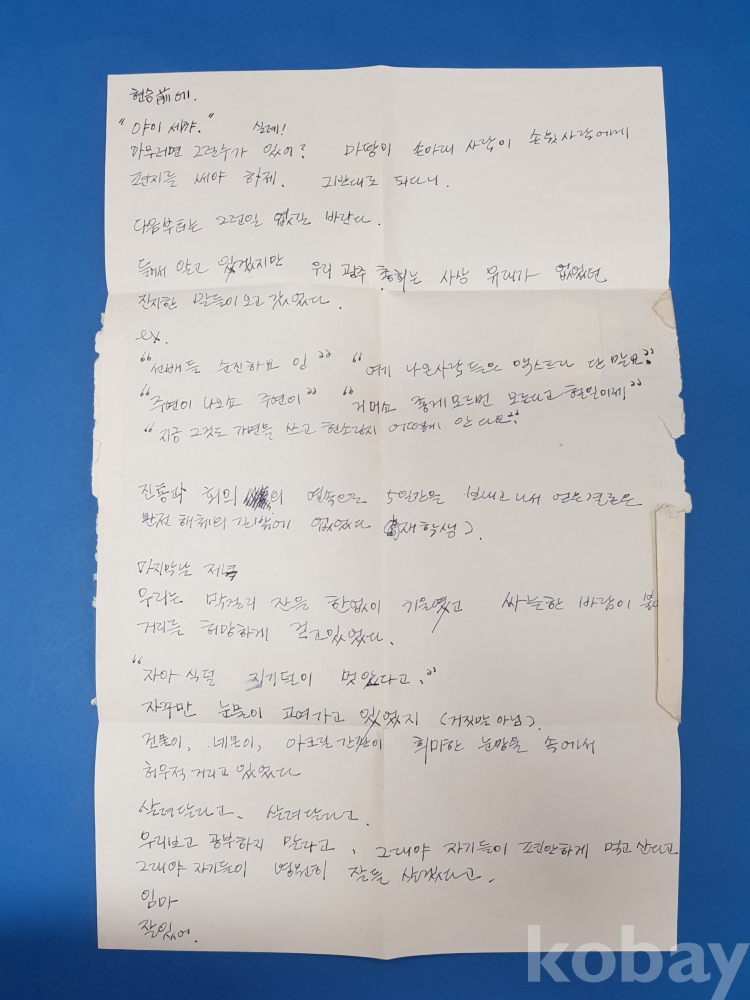 현승前에.
"야이 세꺄." 실례!
아무러면 그럴수가 있어? 마땅이 손아래 사람이 손윗사람에게
편지를 써야 하제. 되다니.
다음부터는 그런일 없길 바란다.
들어서 알고 있겠지만 우리 광주 총회는 사상 유래가 없었던
진지한 말들이 오고 갔었다.
ex.
"선배들 순진하요 잉" "여게 나온사람들은 엑스트라 단 말요?"
"주연이 나오쇼 주연이" "거머쇼
"지금 그것도 가면을 쓰고 어떻게 안다요?"
진통과 회의의 연속으로 5일간을 보내고 나서 얻은 결론은
완전 해체의 길밖에 없었다 (재학생).
마지막날 저녁
우리는 막걸리 잔을 한없이 기울였고 싸늘한 바람이 부는
거리를 허망하게 걷고있었다.
"자아 식덜 지기덜이 멋있다고."
자꾸만 눈물이 고여가고 있었지 (거짓말 아님).
건물이, 네온이, 아크릴 간판이 희미한 눈망울 속에서
허우적 거리고 있었다
살려달라고, 살려달라고.
우리보고 공부하지 말라고, 그래야 자기들이 편안하게 먹고 산다고
그래야 자기들이 영원히 잘들 살겠다고.
임마
잘있어.
kobay